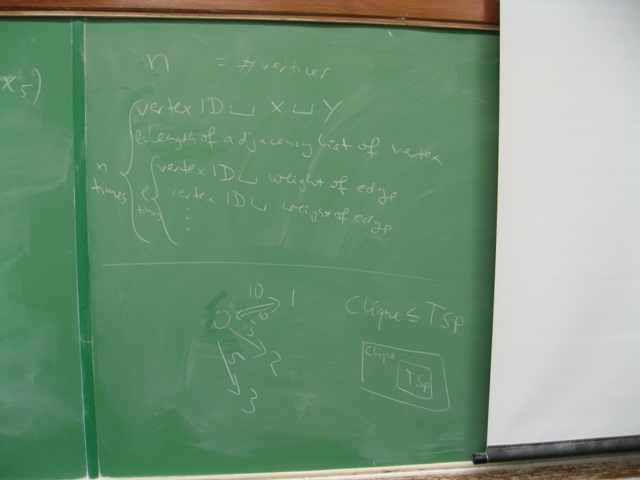 x5)
n = # vertices
vertex ID ⌴ X ⌴ Y
l=Length of adjacency list of vertex
n times
vertex ID ⌴ weight of edge
l times
vertex ID ⌴ weight of edge
⋮
10
0 1
10
5
5 2
3
Clique ≤ TSP
Clique
TSP